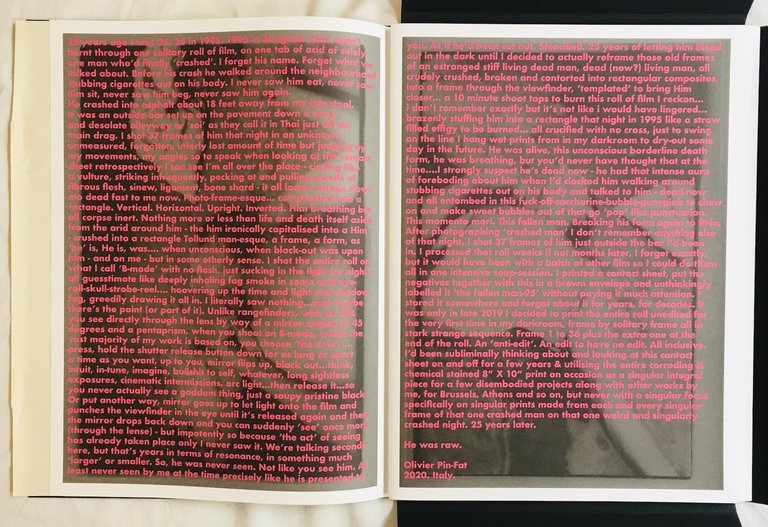 25 years ago I was 25. 25 in 1995. 1995 in Bangkok. One night I
burnt through one solitary roll of film, on one tab of acid of solely
one man who'd finally 'crashed'. I forget his name. Forget what we
talked about. Before his crash he walked around the neighbourhood
stubbing cigarettes out on his body. I never saw him eat, never saw
him sit, never saw him beg, never saw him again.
He crashed into asphalt about 18 feet away from my bar stool,
it was an outside bar set up on the pavement down a dark
and desolate alleyway or 'soi' as they call it in Thai just off the
main drag. I shot 37 frames of him that night in an unknown,
unmeasured, forgotten, utterly lost amount of time but judging by
my movements, my angles so to speak when looking at the contact
sheet retrospectively I can see I'm all over the place - circling like
a vulture, striking infrequently, pecking at and pulling shreds of
fibrous flesh, sinew, ligament, bone shard - it all looks
mo dead fast to me now. Photo-frame-esque... compressed into a
rectangle. Vertical. Horizontal. Upright. Inverted. Him breathing but
all corpse inert. Nothing more or less than life and death itself aside
from the arid around him - the him ironically capitalised into a Him
- crushed into a rectangle Tollund man-esque, a frame, a form, as
'he' is, He is, was.... when unconscious, when black-out was upon
him - and on me - but in some otherly sense. I shot the entire roll on
what I call 'B-mode' with no flash, just sucking in the light (or night)
all guesstimate like deeply inhaling fag smoke in some rock-eye-
roll-skull-strobe-reel.... hoovering up the time and light and shadow
fog, greedily drawing it all in. I literally saw nothing...and maybe
there's the point (or part of it). Unlike rangefinders, with an SLR
you see directly through the lens by way of a mirror angled at 45
degrees and a pentaprism, when you shoot on B-mode, which the
vast majority of my work is based on, you choose 'the time' you
press, hold the shutter release button down for as long or short
a time as you want, up to you, mirror flips up, black out...think,
intuit, in-tune, imagine, bullshit to self, whatever, long sightless
exposures, cinematic intermissions, arc light...then release it...so
you never actually see a goddam thing, just a soupy pristine black.
Or put another way, mirror goes up to let light onto the film and
punches the viewfinder in the eye until it's released again and then
the mirror drops back down and you can suddenly 'see' once more
(through the lense) - but impotently so because 'the act' of seeing
has already taken place only I never saw it. We're talking seconds
here, but that's years in terms of resonance, in something much
'larger' or smaller. So, he was never seen. Not like you see him. At
least never seen by me at the time precisely like he is presented to
you. As if he'd been cut out. Stencilled. 25 years of letting him bleed
out in the dark until I decided to actually reframe those old frames
of an estranged stiff living dead man, dead (now?) living man, all
crudely crushed, broken and contorted into rectangular composites,
into a frame through the viewfinder, 'templated' to bring Him
closer... a 10 minute shoot tops to burn this roll of film I reckon...
I don't remember exactly but it's not like i would have lingered...
brazenly stuffing him into a rectangle that night in 1995 like a straw
filled effigy to be burned... all crucified with no cross, just to swing
on the line I hang wet prints from in my darkroom to dry-out some
day in the future. He was alive, this unconscious borderline death
form, he was breathing, but you'd never have thought that at the
time....I strongly suspect he's dead now - he had that intense aura
of foreboding about him when I'd clocked him walking around
stubbing cigarettes out on his body and talked to him - dead now
and all entombed in this fuck-off-saccharine-bubble-gum-pink to chew
on and make sweet bubbles out of that go 'pop' like punctuation.
This momento mori. This fallen man. Breaking his form again to fit-in.
After photographing 'crashed man' I don't remember anything else
of that night. I shot 37 frames of him just outside the bar I'd been
in. I processed that roll weeks if not months later, I forget exactly,
but it would have been with a batch of other film so I could do them
all in one intensive soup-session. I printed a contact sheet, put the
negatives together with this in a brown envelope and unthinkingly
labelled it 'the fallen man-95' without paying it much attention. I
stored it somewhere and forgot about it for years, for decades. It
was only in late 2019 I decided to print the entire roll unedited for
the very first time in my darkroom, frame by solitary frame all in
stark strange sequence. Frame 1 to 36 plus the extra one at the
end of the roll. An 'anti-edit'. An edit to have no edit. All inclusive.
I'd been subliminally thinking about and looking at this contact
sheet on and off for a few years & utilising the entire corroding &
chemical stained 8" X 10" print on occasion as a singular integral
piece for a few disembodied projects along with other works by
me, for Brussels, Athens and so on, but never with a singular focus
specifically on singular prints made from each and every singular
frame of that one crashed man on that one weird and singularly
crashed night. 25 years later.
He was raw.
Olivier Pin-Fat
2020. Italy.